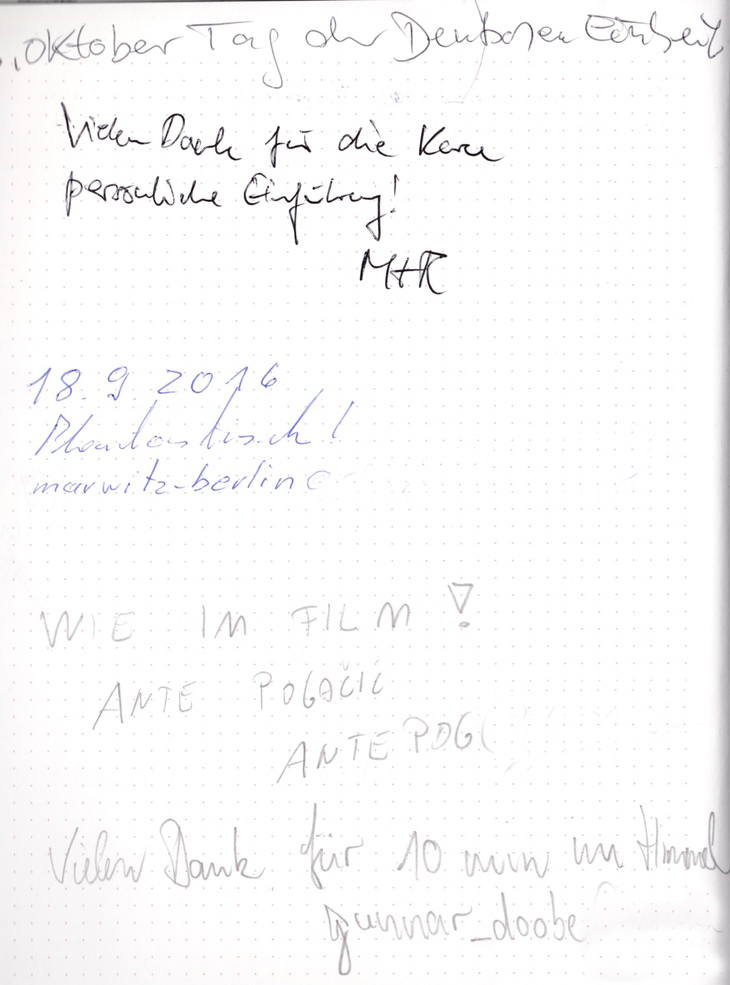 Oktober Tag der Deutschen Einheit
Vielen Dank für die
persönliche Einführung!
M+R
18.9.2016
Phantastisch!
marwitz-berlin@
WIE IM FILM!
ANTE POGAČIĆ
ANTE POG
Vielen Dank für 10 min im Himmel
gunnar_doobe